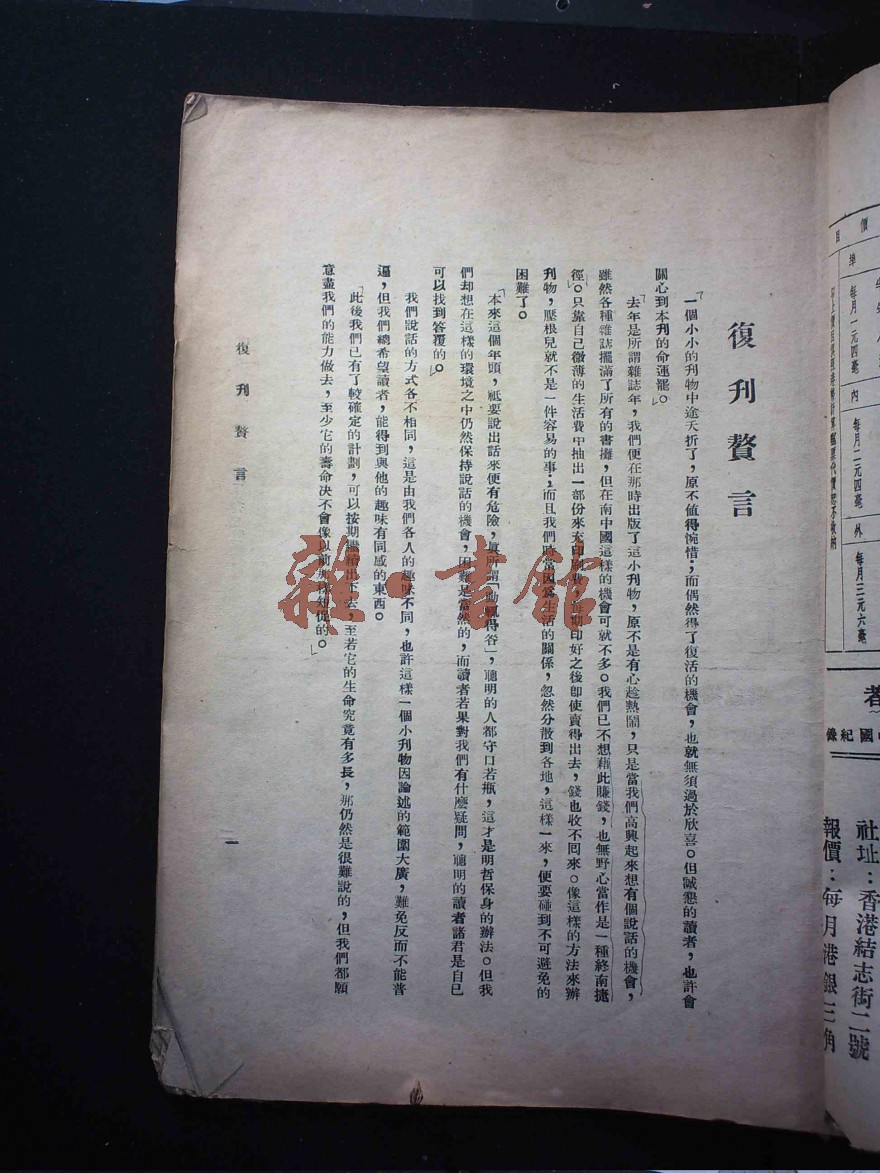 復刊贅言
一個小小的刊物中途夭折了，原不值得惋惜；而偶然得了復活的機會，也就無須過於欣喜。但誠懇的讀者，也許會
關心到本刊的命運罷。
去年是所謂雜誌年，我們便在那時出版了這小刊物，原不是有心趁熱鬧，只是當我們高興起來想有個說話的機會，
雖然各種雜誌擺滿了所有的書攤，但在南中國這樣的機會可就不多。我們已不想藉此賺錢，也無野心當作是一種終南捷
徑。只靠自己微薄的生活費中抽出一部份來充印刷費，每期印好之後即使賣得出去，錢也收不囘來。像這樣的方法來辦
刊物，壓根兒就不是一件容易的事；而且我們時常因為生活的關係，忽然分散到各地，這樣一來，便要碰到不可避免的
困難了。
本來這個年頭，祗要說出話來便有危險，眞所謂「動輒得咎」，聰明的人都守口若瓶，這才是明哲保身的辦法。但我
們却想在這樣的環境之中仍然保持說話的機會，困難是當然的，而讀者若果對我們有什麼疑問，聰明的讀者諸君是自己
可以找到答覆的。
我們說話的方式各不相同，這是由我們各人的趣味不同，也許這樣一個小刊物因論述的範圍大廣，難免反而不能普
遍，但我們總希望讀者，能得到與他的趣味有同感的東西。
此後我們已有了較確定的計劃，可以按期繼續出下去，至若它的生命究竟有多長，那仍然是很難說的，但我們都願
意盡我們的能力做去，至少它的壽命决不會像以前那樣短促的。
復刊贅言
一
雜·書館
價
每月一元四毫
內
每月二元四毫
外
每月三元六毫
國紀錄
社址：香港結志街二號
報價：每月港銀三角